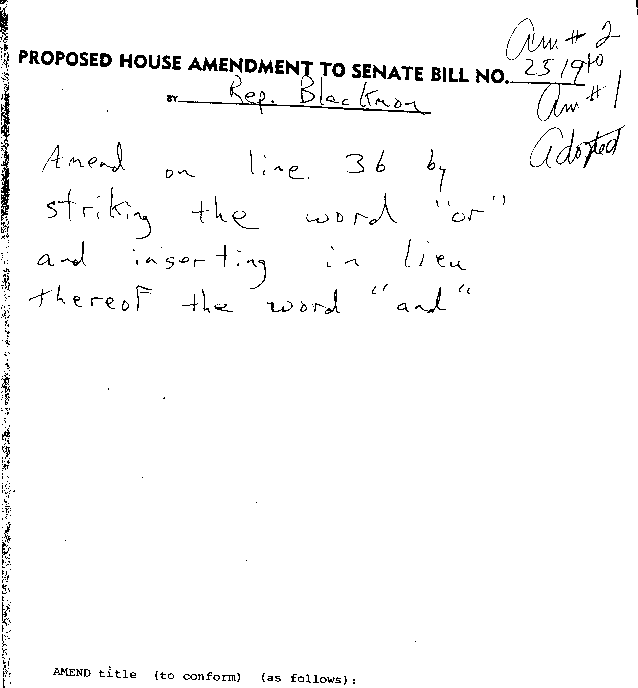 Am # 2
PROPOSED HOUSE AMENDMENT TO SENATE BILL NO. 2519
Am # 1
BY Rep. Blackmon
Adopted
Amend on line 36 by
striking the word "or"
and inserting in lieu
thereof the word "and"
AMEND title (to conform) (as follows):